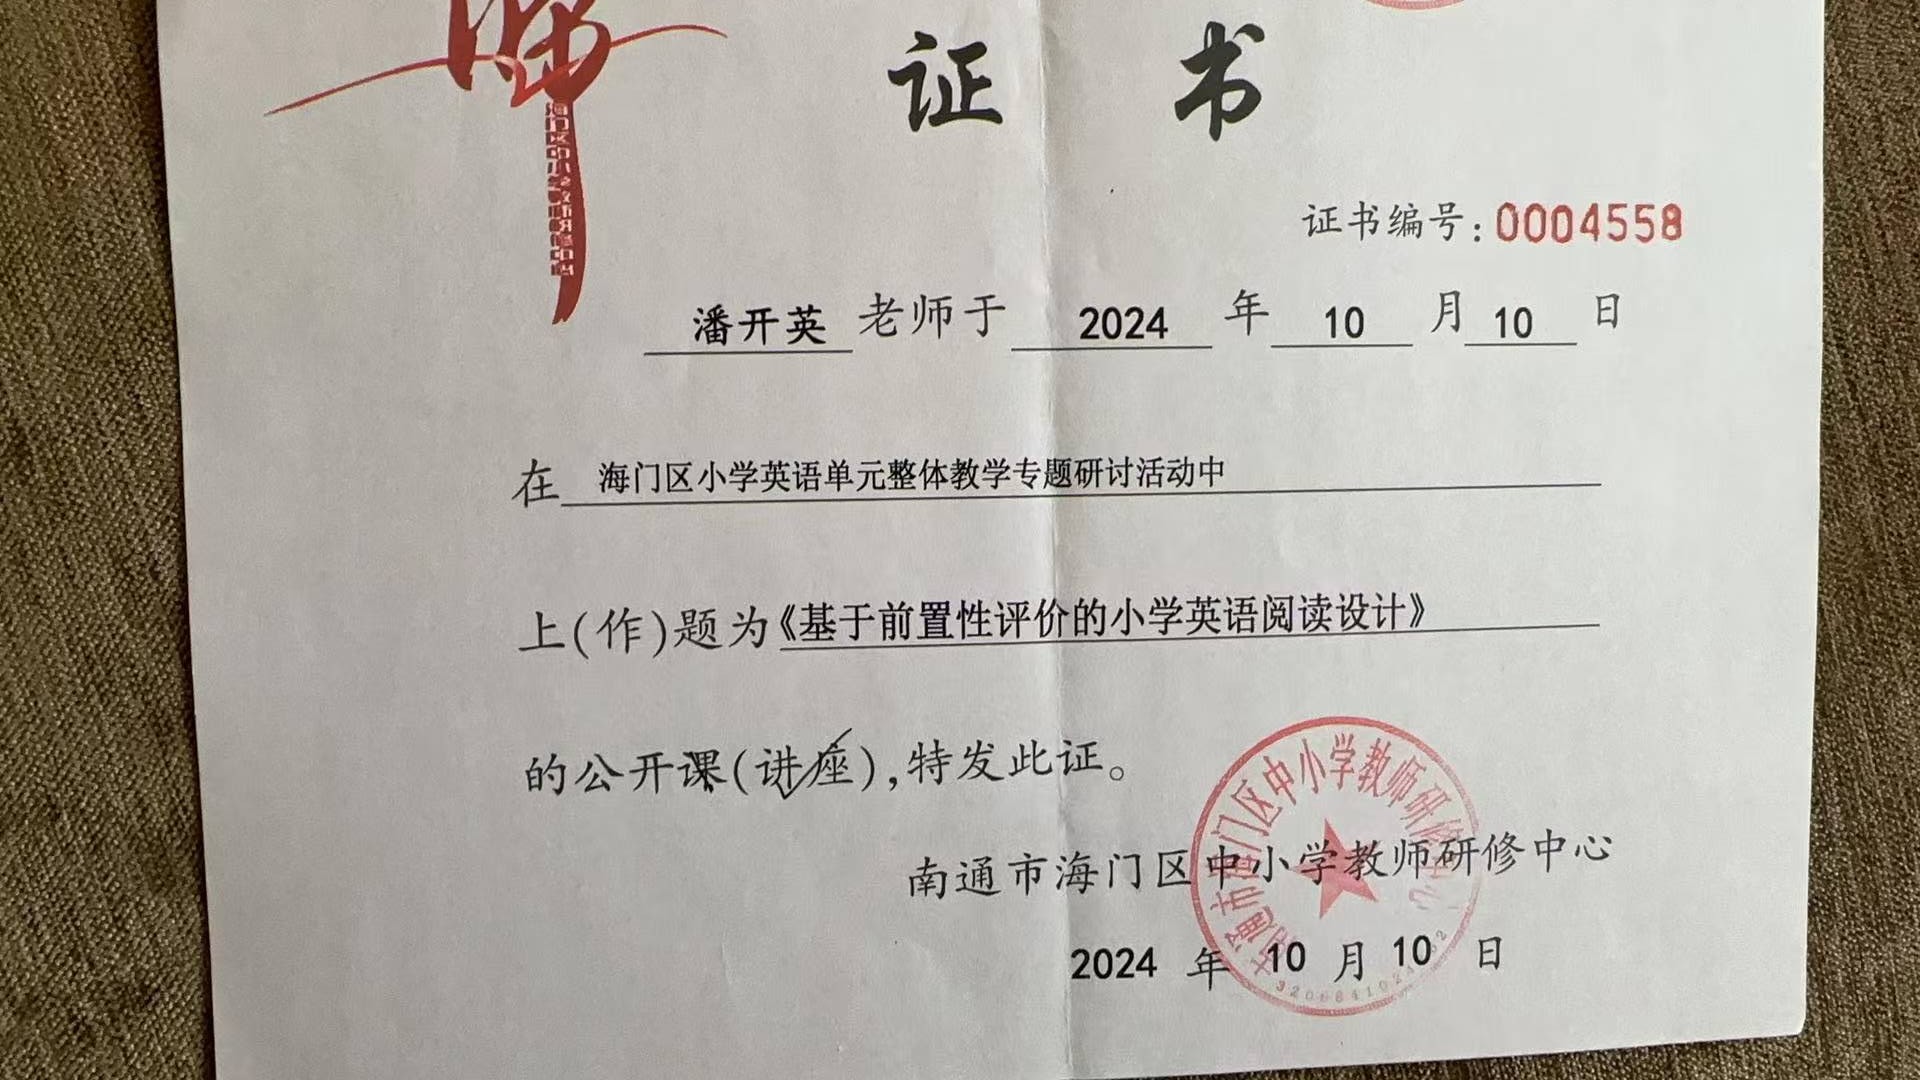 证书
海门区中小学教师研修中心
证书编号:0004558
潘开英 老师于 2024 年 10 月 10 日
在 海门区小学英语单元整体教学专题研讨活动中
上(作)题为《基于前置性评价的小学英语阅读设计》
的公开课(讲座),特发此证。
南通市海门区中小学教师研修中心
南通市海门区中小学教师研修中心
2024 年 10 月 10 日